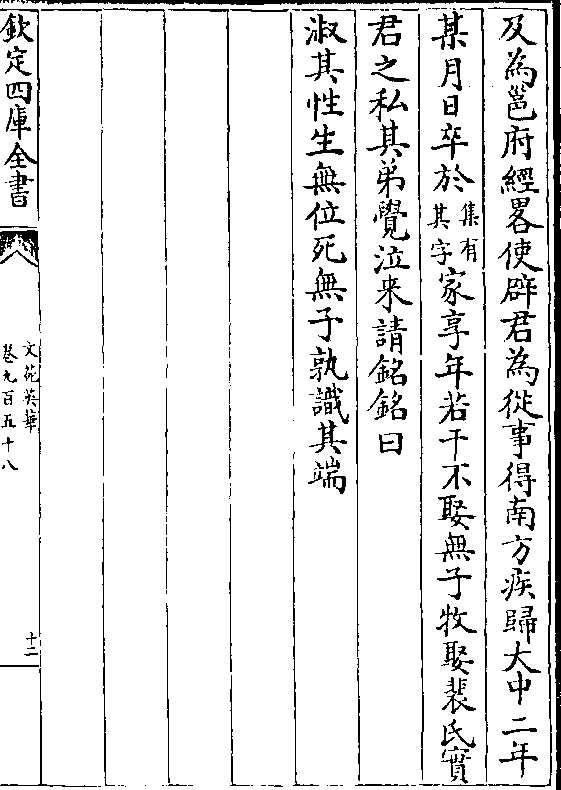 及為邕府經畧使辟君為從事得南方疾歸大中二年
某月日卒於集有其字家享年若干不娶無子牧娶裴氏實
君之私其弟覺泣来請銘銘曰
淑其性生無位死無子孰識其端
欽定四庫全書
文苑英華
卷九百五十八
十二